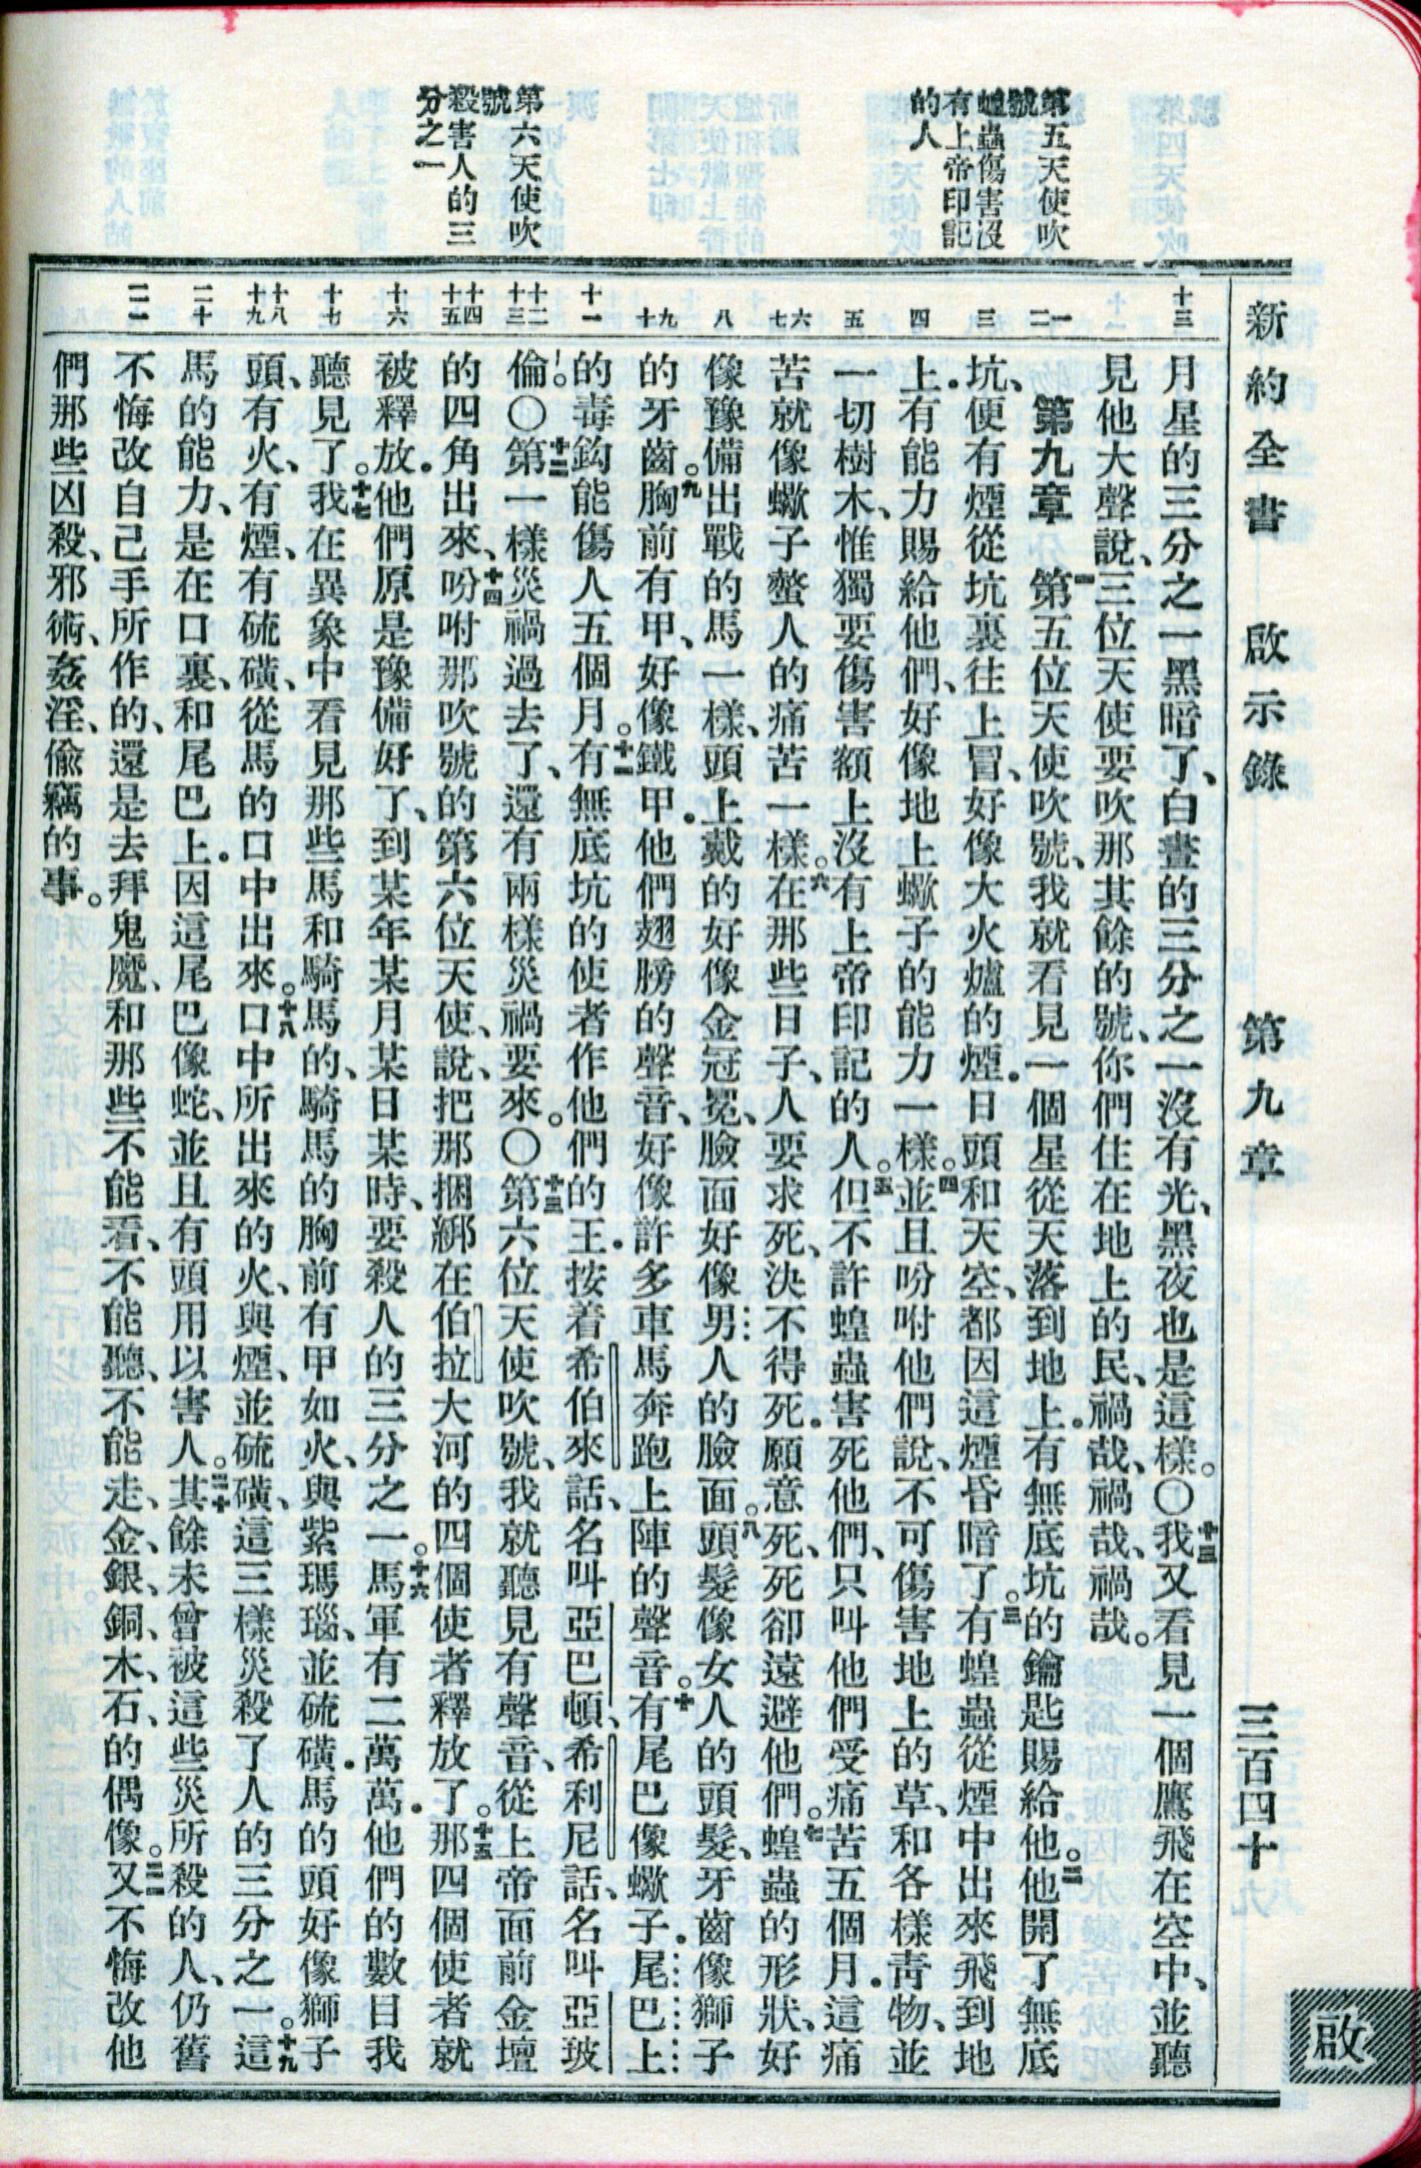 新約全書　啟示錄　第九章　三百四十
啟
第五天使吹
號
蝗蟲傷害沒
有上帝印記
的人
第六天使吹
號
殺害人的三
分之一
十三
一
二
三
四
五
六
七
八
九
十
十一
十二
十三
十四
十五
十六
十七
十八
十九
二十
二一
月星的三分之一黑暗了、白晝的三分之一沒有光、黑夜也是這樣。〇十三我又看見一個鷹飛在空中、並聽
見他大聲說、三位天使要吹那其餘的號、你們住在地上的民、禍哉、禍哉、禍哉。
第九章　一第五位天使吹號、我就看見一個星從天落到地上．有無底坑的鑰匙賜給他。二他開了無底
坑、便有煙從坑裏往上冒、好像大火爐的煙．日頭和天空、都因這煙昏暗了。三有蝗蟲從煙中出來飛到地
上．有能力賜給他們、好像地上蠍子的能力一樣。四並且吩咐他們說、不可傷害地上的草、和各樣靑物、並
一切樹木、惟獨要傷害額上沒有上帝印記的人。五但不許蝗蟲害死他們、只叫他們受痛苦五個月．這痛
苦就像蠍子螫人的痛苦一樣。六在那些日子、人要求死、決不得死．願意死、死卻遠避他們。七蝗蟲的形狀、好
像豫備出戰的馬一樣、頭上戴的好像金冠冕、臉面好像男人的臉面。八頭髮像女人的頭髮、牙齒像獅子
的牙齒。九胸前有甲、好像鐵甲．他們翅膀的聲音、好像許多車馬奔跑上陣的聲音。十有尾巴像蠍子．尾巴上
的毒鈎能傷人五個月。十一有無底坑的使者作他們的王．按着希伯來話、名叫亞巴頓、希利尼話、名叫亞玻
倫。〇十二第一樣災禍過去了、還有兩樣災禍要來。〇十三第六位天使吹號、我就聽見有聲音、從上帝面前金壇
的四角出來、十四吩咐那吹號的第六位天使、說、把那捆綁在伯拉大河的四個使者釋放了。十五那四個使者就
被釋放．他們原是豫備好了、到某年某月某日某時、要殺人的三分之一。十六馬軍有二萬萬．他們的數目我
聽見了。十七我在異象中看見那些馬和騎馬的、騎馬的胸前有甲如火、與紫瑪瑙、並硫磺．馬的頭好像獅子
頭、有火、有煙、有硫磺、從馬的口中出來。十八口中所出來的火、與煙、並硫磺、這三樣災殺了人的三分之一。十九這
馬的能力、是在口裏、和尾巴上．因這尾巴像蛇、並且有頭用以害人。二十其餘未曾被這些災所殺的人、仍舊
不悔改自己手所作的、還是去拜鬼魔、和那些不能看、不能聽、不能走、金、銀、銅、木、石、的偶像。二一又不悔改他
們那些凶殺、邪術、姦淫、偷竊的事。